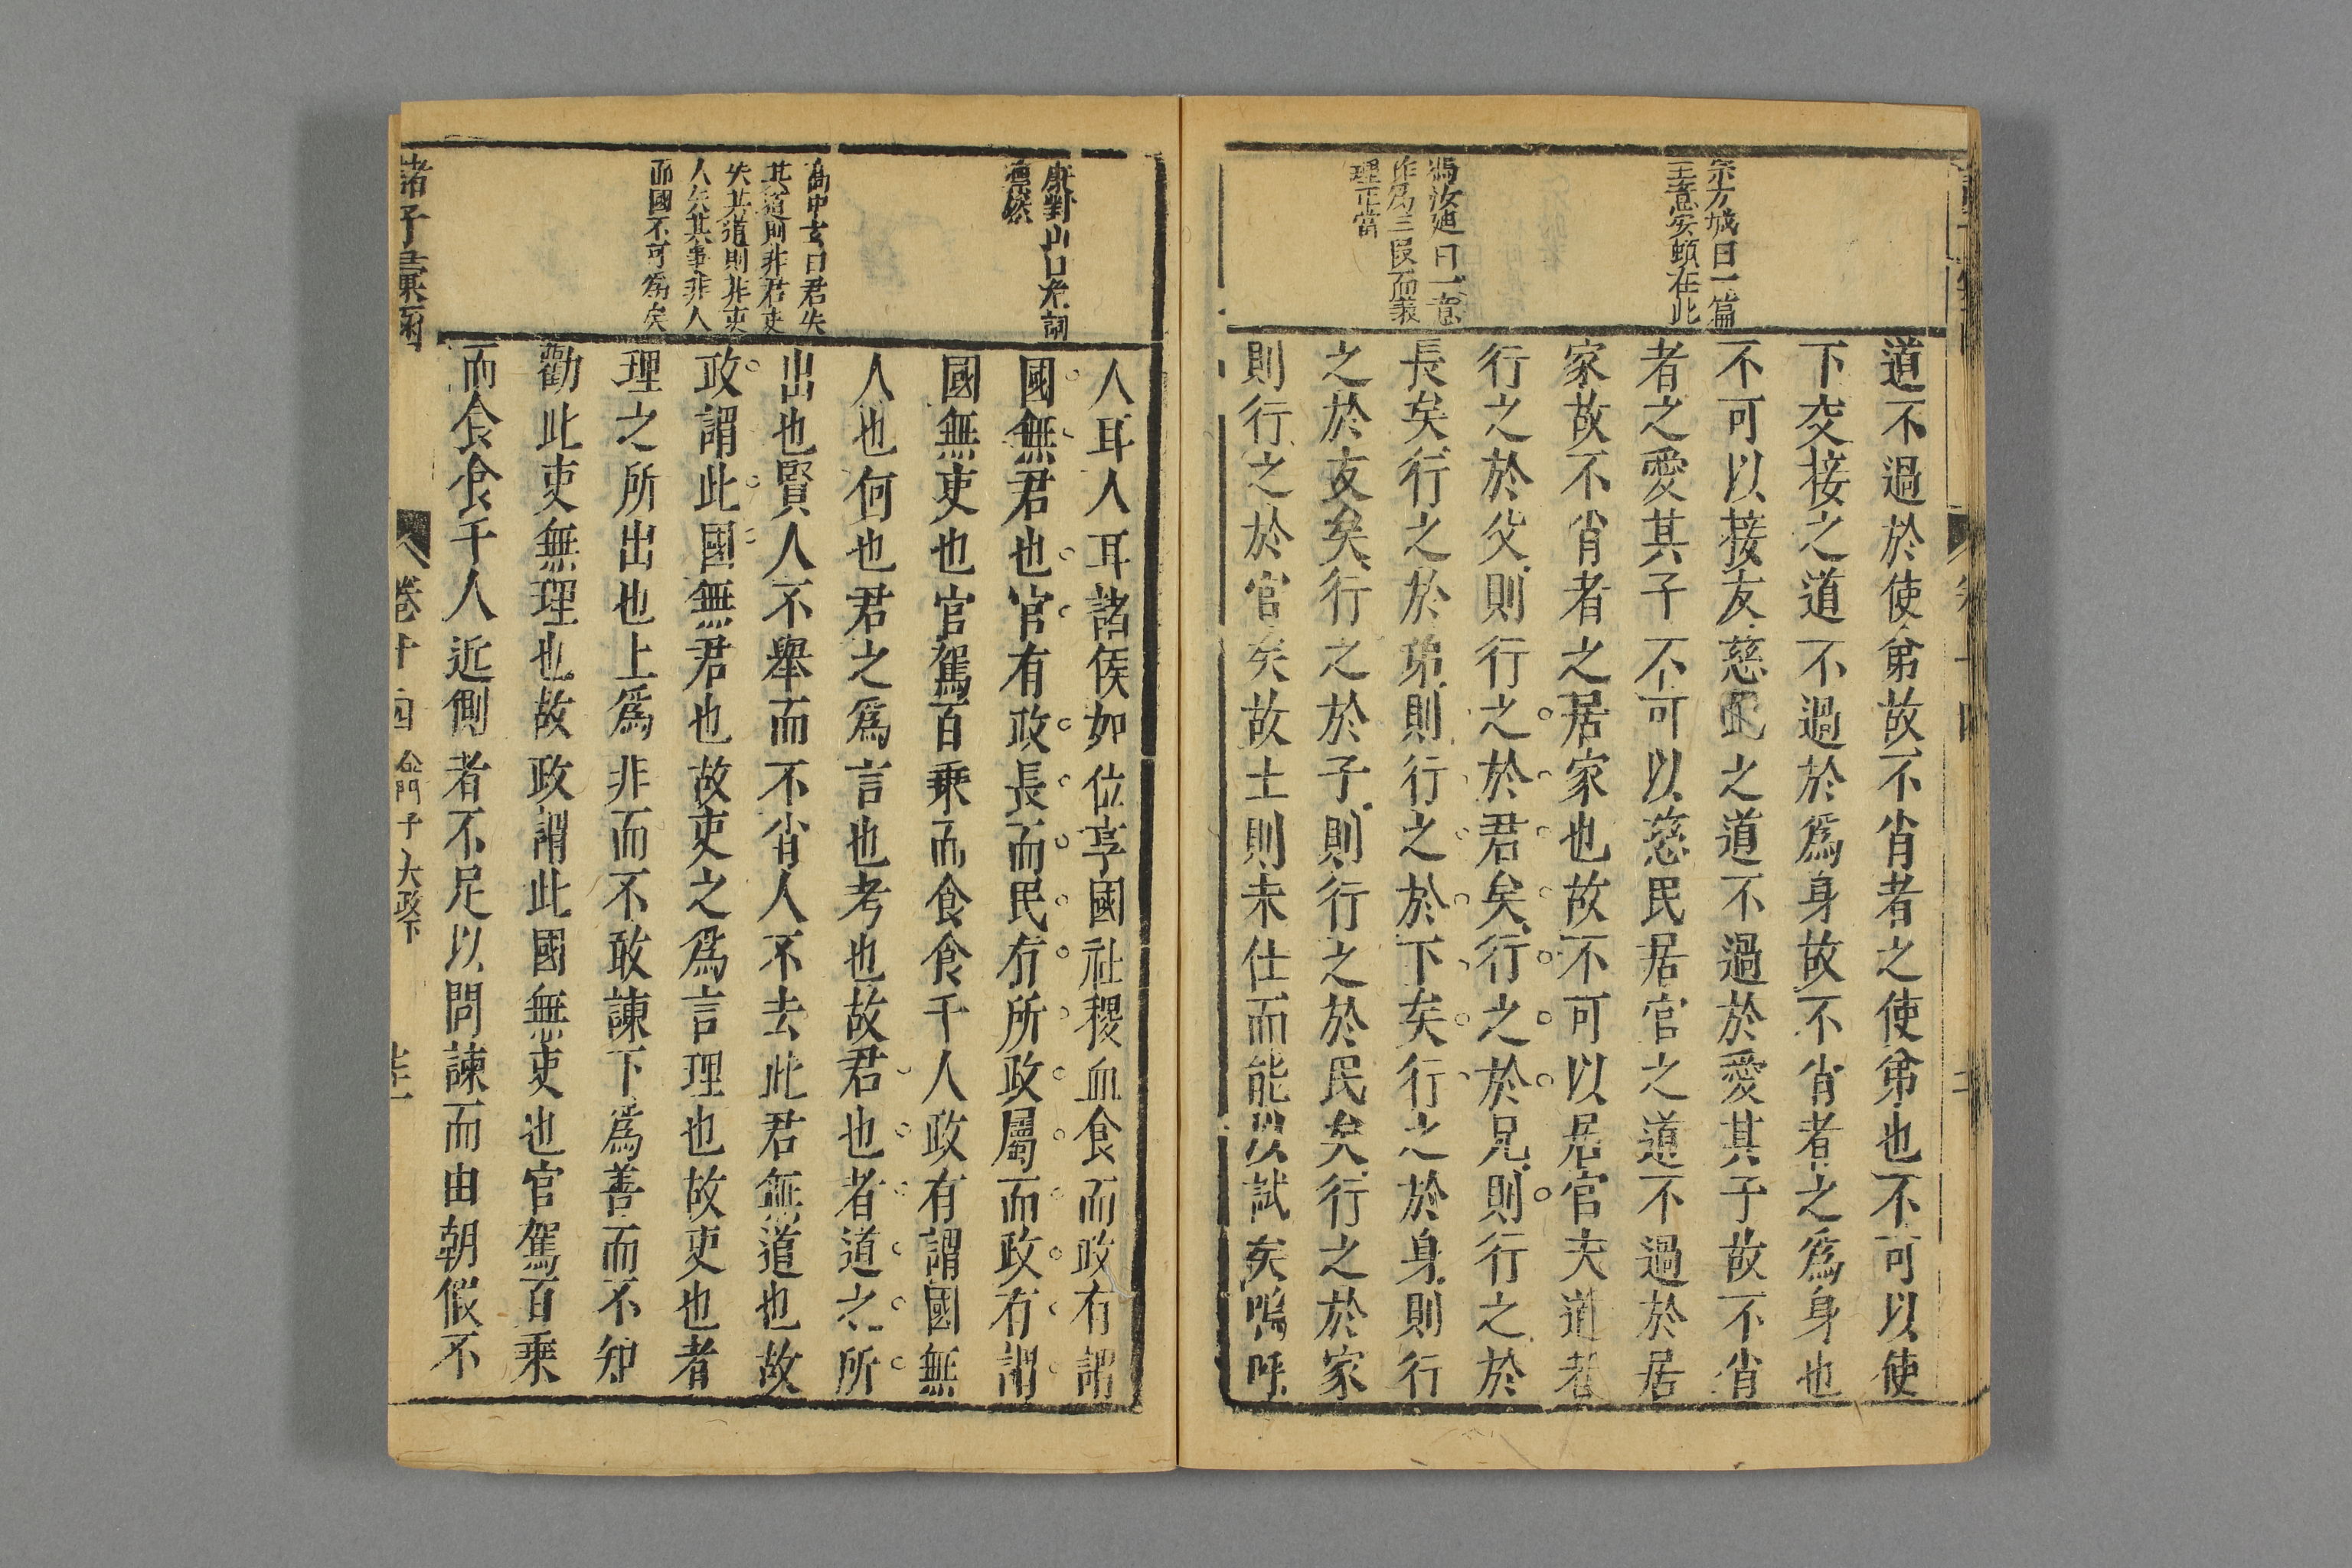 宗方城曰一篇
主意安頓在此
馮汝廸曰一意
作爲三段而義
理正當
道不過於使弟故不肖者之使弟也不可以使
下交接之道不過於爲身故不肖者之爲身也
不可以接友慈民之道不過於愛其子故不肖
者之愛其子不可以慈民居官之道不過於居
家故不肖者之居家也故不可以居官夫道者
行之於父則行之於君矣行之於兄則行之於
長矣行之於弟則行之於下矣行之於身則行
之於友矣行之於子則行之於民矣行之於家
則行之於官矣故士則未仕而能以試矣嗚呼
康對山曰危詞
凛然
高中玄曰君失
其道則非君吏
失其道則非吏
人失其事非人
而國不可爲矣
人耳人耳諸侯如位享國社稷血食而政有謂
國無君也官有政長而民有所政屬而政有謂
國無吏也官駕百乘而食食千人政有謂國無
人也何也君之爲言也考也故君也者道之所
出也賢人不舉而不肖人不去此君無道也故
政謂此國無君也故吏之爲言理也故吏也者
理之所出也上爲非而不敢諫下爲善而不知
勸此吏無理也故政謂此國無吏也官駕百乘
而食食千人近側者不足以問諫而由朝假不
諸子彙函
卷十四
金門子大政下